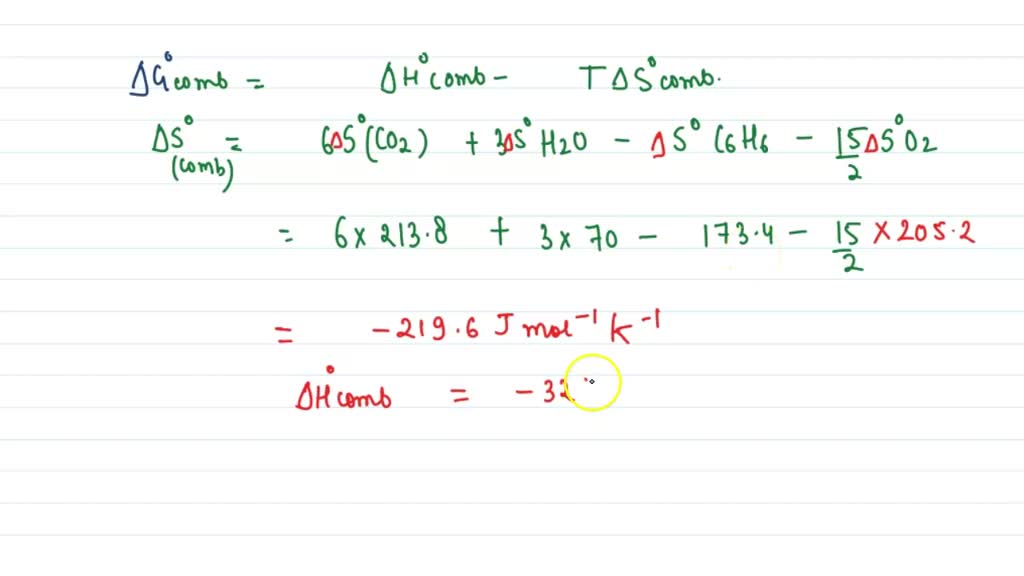 ΔG°comb = ΔH°comb - TΔS°comb.
ΔS°(comb) = 6ΔS°(CO2) + 3ΔS°H2O - ΔS°C6H6 - 15/2 ΔS°O2
= 6 x 213.8 + 3 x 70 - 173.4 - 15/2 x 205.2
= -219.6 J mol⁻¹ K⁻¹
ΔH°comb = -32